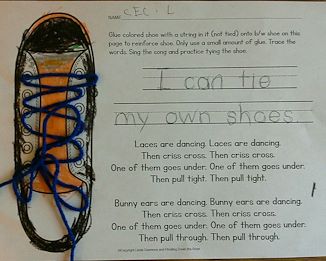 NAME CECIL
Glue colored shoe with a string in it (not tied) onto b/w shoe on this
page to reinforce shoe. Only use a small amount of glue. Trace the
words. Sing the song and practice tying the shoe.
I can tie
my own shoes.
Laces are dancing. Laces are dancing.
Then criss cross. Then criss cross.
One of them goes under. One of them goes under.
Then pull tight. Then pull tight.
Bunny ears are dancing. Bunny ears are dancing.
Then criss cross. Then criss cross.
One of them goes under. One of them goes under.
Then pull through. Then pull through.